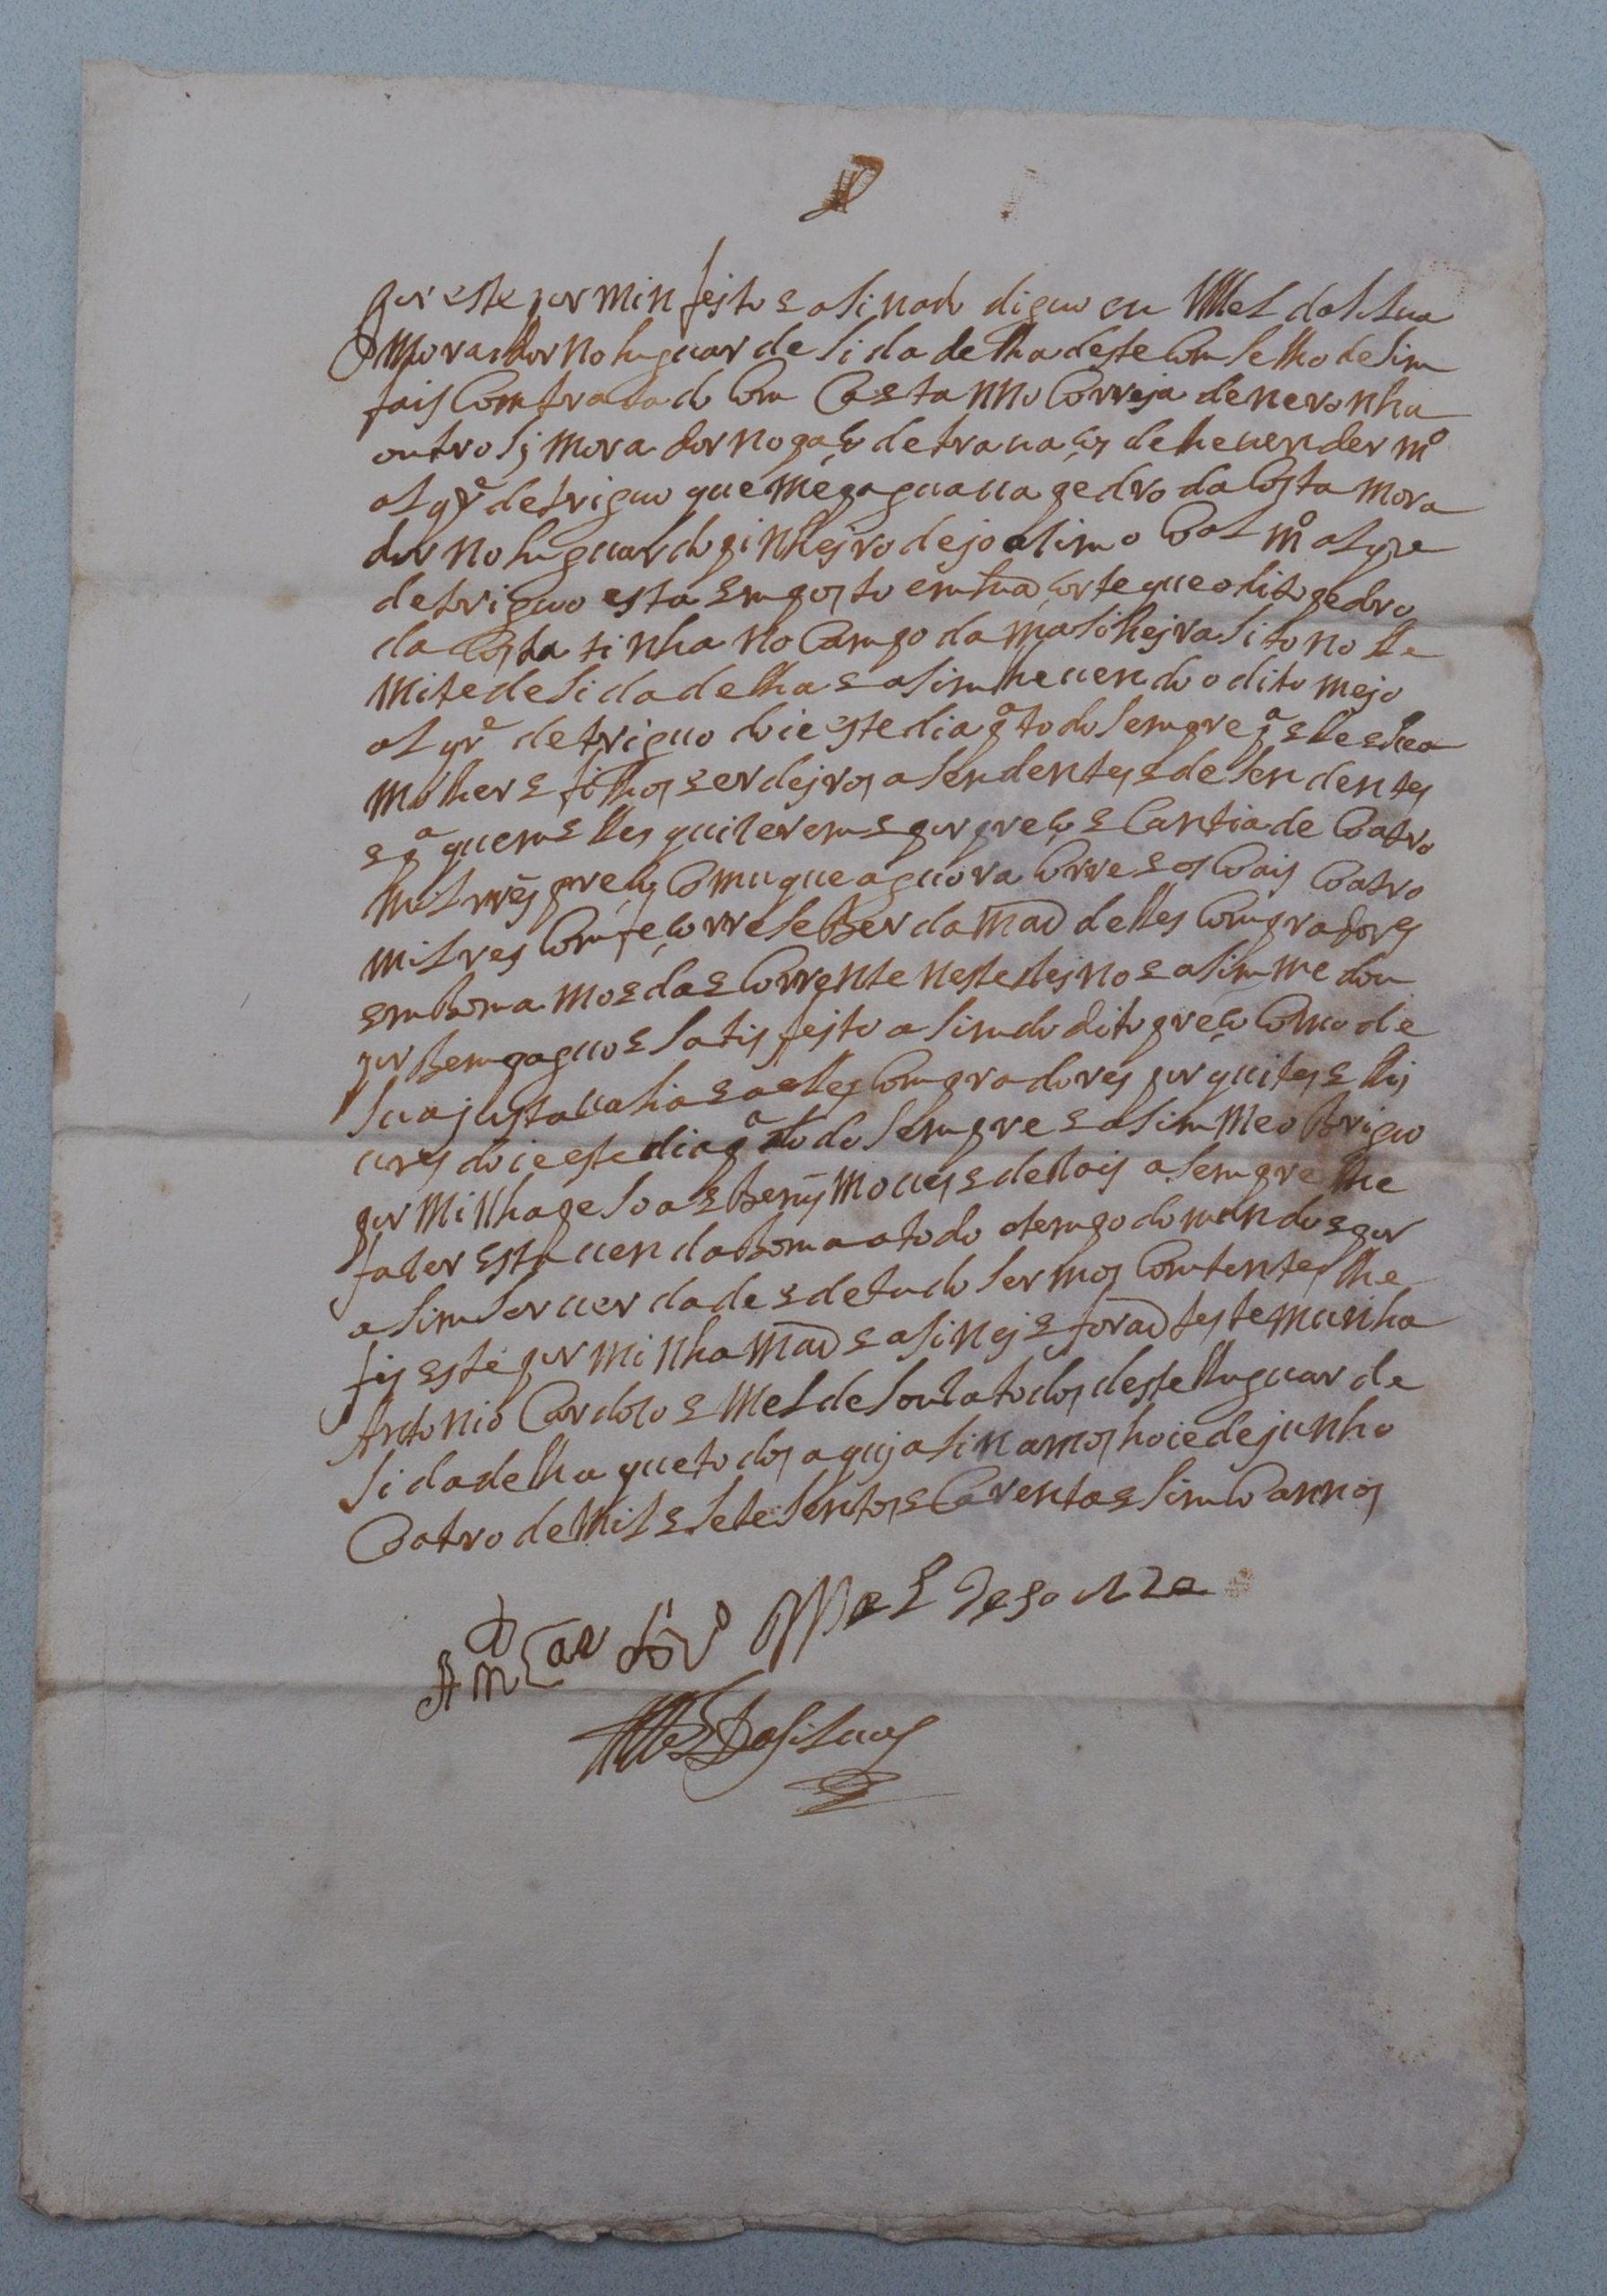 por este por min fejto e asinado diguo eu Mel da Silua
Morador no luguar de Sidadelha deste Comselho de Sim
fais Comtratado Com Caetanno Correja de neronha
outro sj morador no paço de trauaços de he uender mº
alqrº de triguo que me paguaua pedro da Costa mora
dor no luguar do pinhejro de jo asimo Coal mº alqre
de triguo esta emposto em hũa corte que o dito pedro
da Costa tinha no Campo da masihejra sito no le
mite de Sidadelha e asim lhe uendo o dito mejo
alqrº de triguo doie este dia pª todo sempre pª elle e sua
molher e filhos erdejros asendentes e desendentes
e pª quem elles quizerem e por preço e Cantia de Coatro
mil rres preço Comu que aguora Corre e os Coais Coatro
mil res Comfeço rreseber da mão delles Compradores
em boma moeda e Corrente neste Rejno e asim me dou
por bem paguo e satisfejto asim do dito preço Como de
sua justa ualia e a elles Compradores por quites e lij
ures doie este dia pª todo sempre e asim me obriguo
por minha pesoa e bens moues e de Rais a sempre lhe
fazer esta uenda boma a todo o tempo do mundo e por
asim ser uerdade e de tudo sermos Comtentes lhe
fis este por minha mão e asinej e forão testemunha
Antonio Cardozo e Mel de Souza todos deste lluguar de
Sidadelha que todos aquj asinamos hoie de junho
Coatro de mil e setesentos e Carenta e simCo annos
Antº Cardozo Mel de souza
Mel da Silua